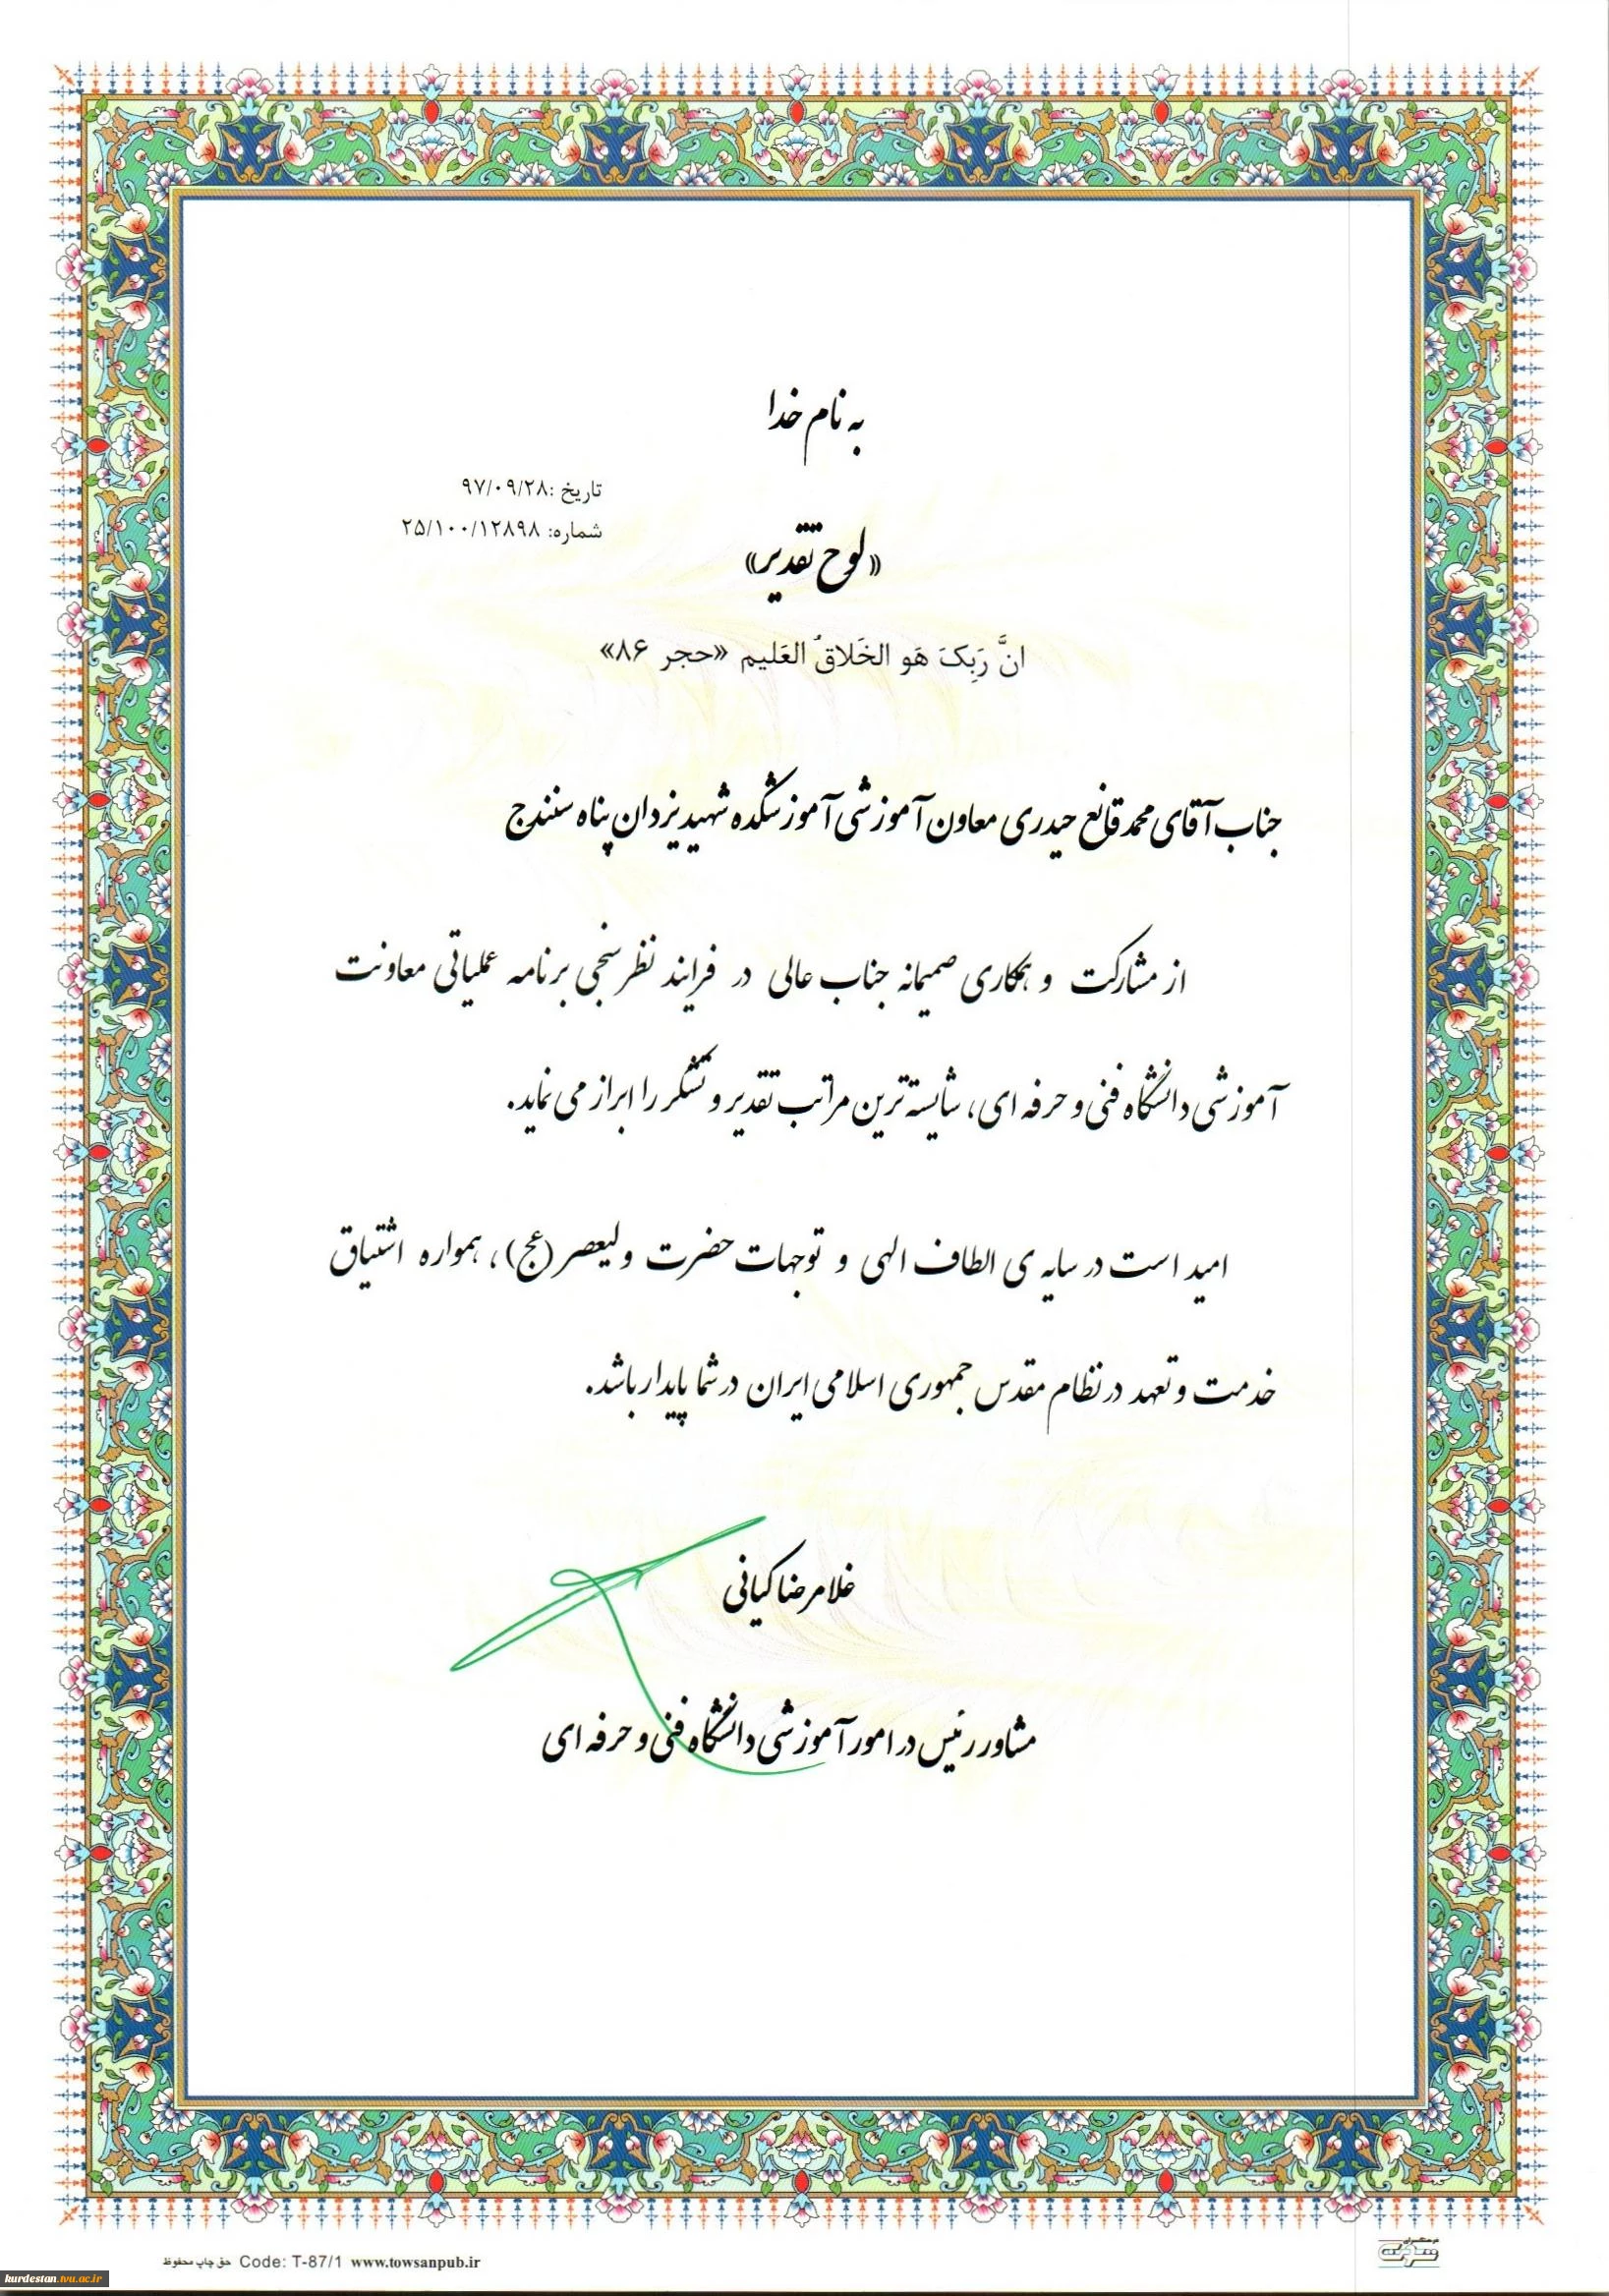 به نام خدا
تاریخ :۹۷/۰۹/۲۸
شماره: ۲۵/۱۰۰/۱۲۸۹۸
«لوح تقدیر»
انَّ رَبِکَ هَو الخَلاقُ العَلیم «حجر ۸۶»
جناب آقای محمد قانع حیدری معاون آموزشی آموزشکده شهید یزدان پناه سنندج
از مشارکت و همکاری صمیمانه جناب عالی در فرایند نظرسنجی برنامه عملیاتی معاونت
آموزشی دانشگاه فنی و حرفه ای، شایسته ترین مراتب تقدیر و تشکر را ابراز می نماید.
امید است در سایه ی الطاف الهی و توجهات حضرت ولیعصر (عج)، همواره اشتیاق
خدمت و تعهد در نظام مقدس جمهوری اسلامی ایران در شما پایدار باشد.
غلامرضا کیانی
مشاور رئیس در امور آموزشی دانشگاه فنی و حرفه ای
حق چاپ محفوظ Code: T-87/1 www.towsanpub.ir
kurdestan.tvu.ac.ir